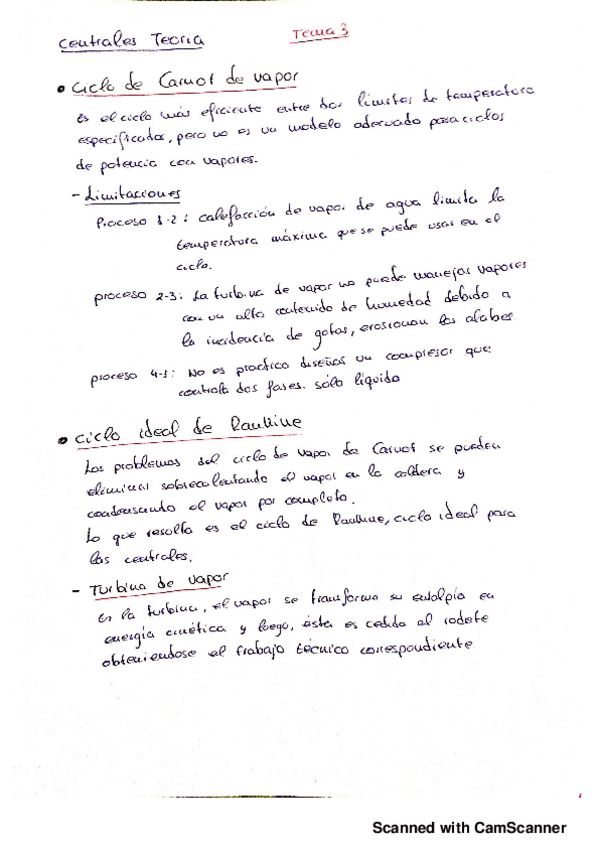 Centrales Teoria
Tema 3
• Ciclo de Carnot de vapor
Es el ciclo más eficiente entre dos límites de temperatura
especificados, pero no es un modelo adecuado para ciclos
de potencia con vapores.
- Limitaciones
Proceso 1-2: calefacción de vapor de agua limita la
temperatura máxima que se puede usar en el
ciclo.
proceso 2-3: La turbina de vapor no puede manejar vapores
con un alto contenido de humedad debido a
la incidencia de gotas, erosionan los alabes
proceso 4-1: No es practico diseñar un compresor que
controla dos fases. sólo líquido
• Ciclo ideal de Rankine
Los problemas del ciclo de vapor de Carnot se pueden
eliminar sobrecalentando el vapor en la caldera y
condensando el vapor por completo.
Lo que resulta es el ciclo de Rankine, ciclo ideal para
las centrales.
- Turbina de vapor
En la turbina, el vapor se transforma su entalpía en
energía cinética y luego, ésta es cedida al rodete
obteniendose el trabajo técnico correspondiente
Scanned with CamScanner